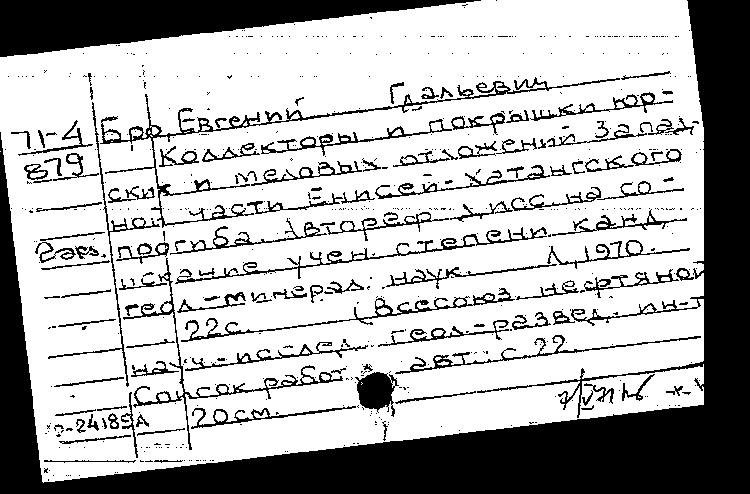 71-4 Бро, Евгений Гдальевич
879 Коллекторы и покрышки юр-
ских и меловых отложений Запад-
ной части Енисей-Хатангского
2 экз. прогиба. Автореф. дисс. на со-
искание учен. степени канд.
геол.-минерал. наук. Л., 1970.
22с. (Всесоюз. нефтяной
науч.-исслед. геол.-развед. ин-т
Список работ авт.: с. 22.
20см.